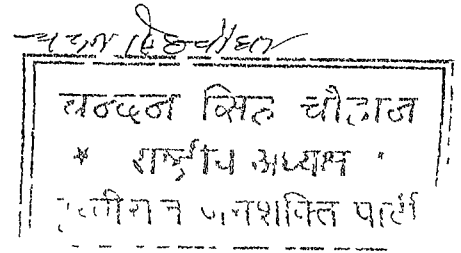 चन्दन सिंह चौहान
चन्दन सिंह चौहान
* राष्ट्रीय अध्यक्ष
जनशक्ति पार्टी